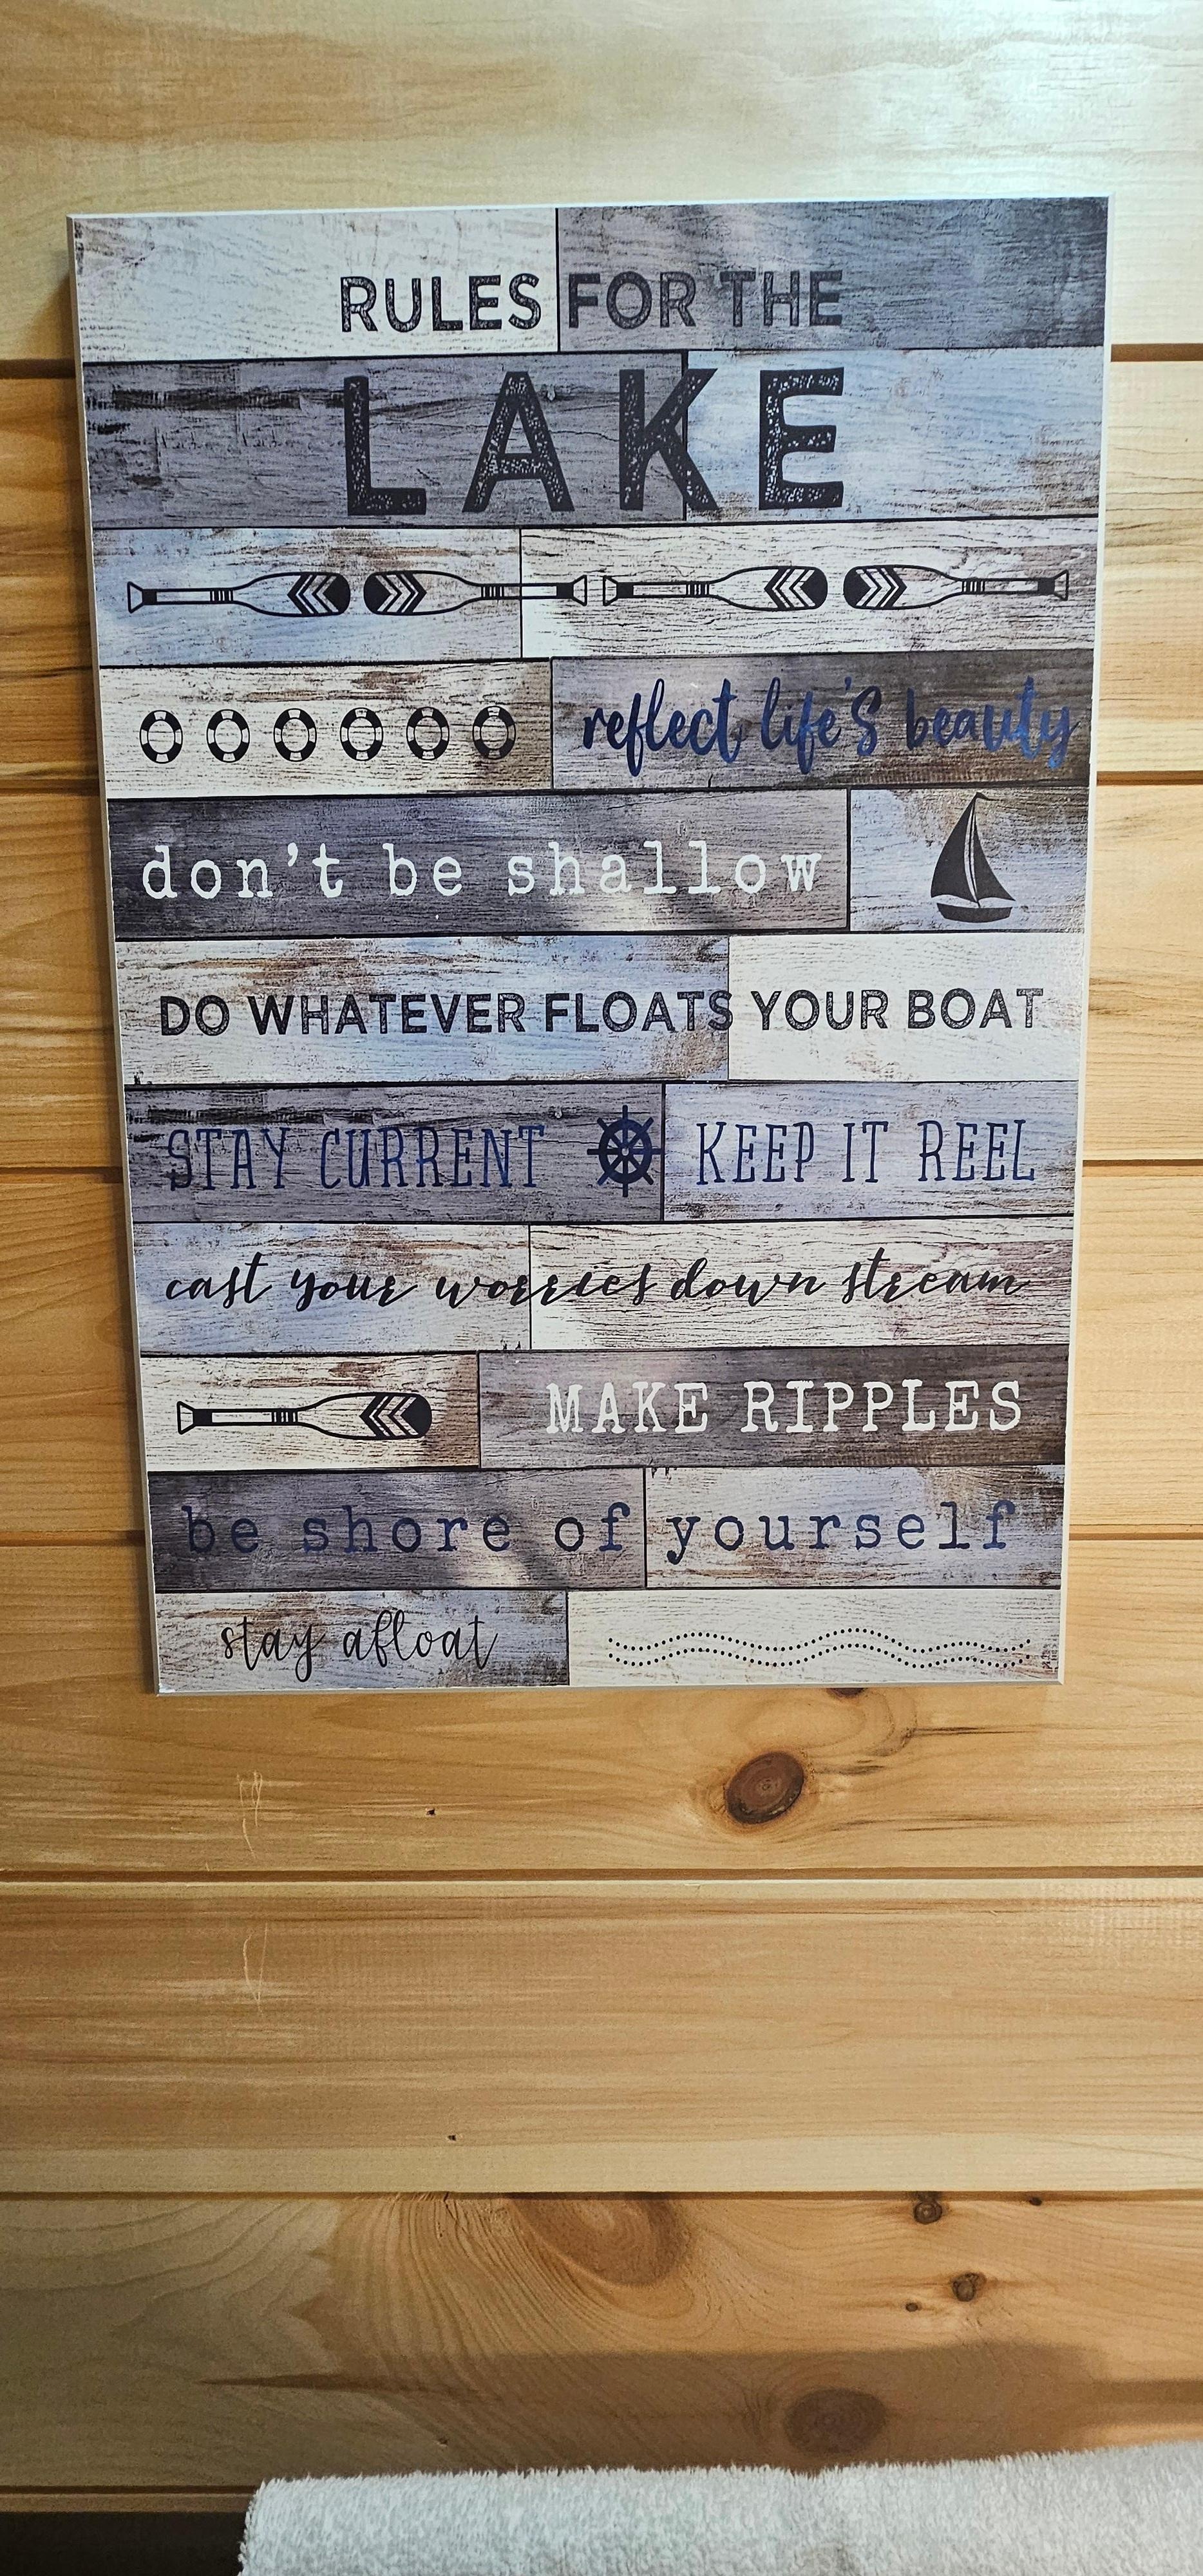 RULES FOR THE
LAKE
reflect life's beauty
don't be shallow
DO WHATEVER FLOATS YOUR BOAT
STAY CURRENT KEEP IT REEL
cast your worries down stream
MAKE RIPPLES
be shore of yourself
stay afloat